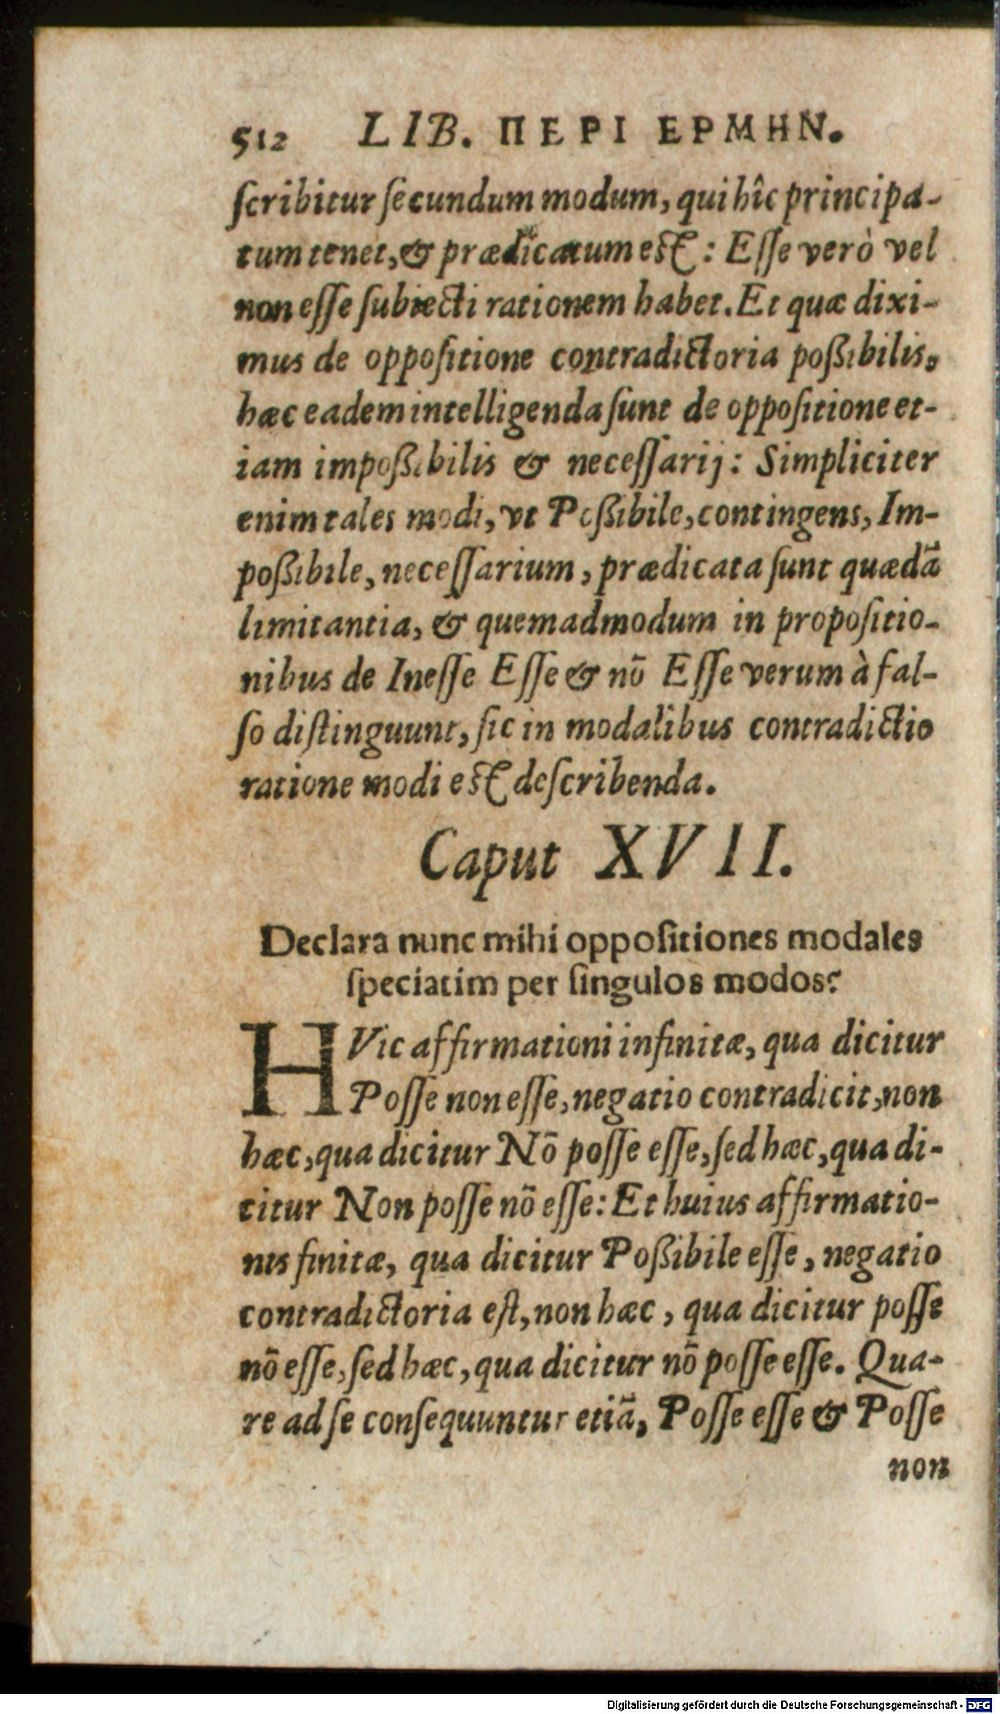 512 LIB. ΠΕΡΙ ΕΡΜΗΝ.
ſcribitur ſecundum modum, qui hîc principa-
tum tenet, & prædicatum eſt: Eſſe verò vel
non eſſe ſubiecti rationem habet. Et quæ dixi-
mus de oppoſitione contradictoria poßibilis,
hæc eadem intelligenda ſunt de oppoſitione et-
iam impoßibilis & neceſſarij: Simpliciter
enim tales modi, vt Poßibile, contingens, Im-
poßibile, neceſſarium, prædicata ſunt quædã
limitantia, & quemadmodum in propoſitio-
nibus de Ineſſe Eſſe & nõ Eſſe verum à fal-
ſo diſtinguunt, ſic in modalibus contradictio
ratione modi eſt deſcribenda.
Caput XVII.
Declara nunc mihi oppoſitiones modales
ſpeciatim per ſingulos modos?
HVic affirmationi infinitæ, qua dicitur
Poſſe non eſſe, negatio contradicit, non
hæc, qua dicitur Nõ poſſe eſſe, ſed hæc, qua di-
citur Non poſſe nõ eſſe: Et huius affirmatio-
nis finitæ, qua dicitur Poßibile eſſe, negatio
contradictoria eſt, non hæc, qua dicitur poſſe
nõ eſſe, ſed hæc, qua dicitur nõ poſſe eſſe. Qua-
re ad ſe conſequuntur etiã, Poſſe eſſe & Poſſe
non
Digitalisierung gefördert durch die Deutsche Forschungsgemeinschaft - DFG